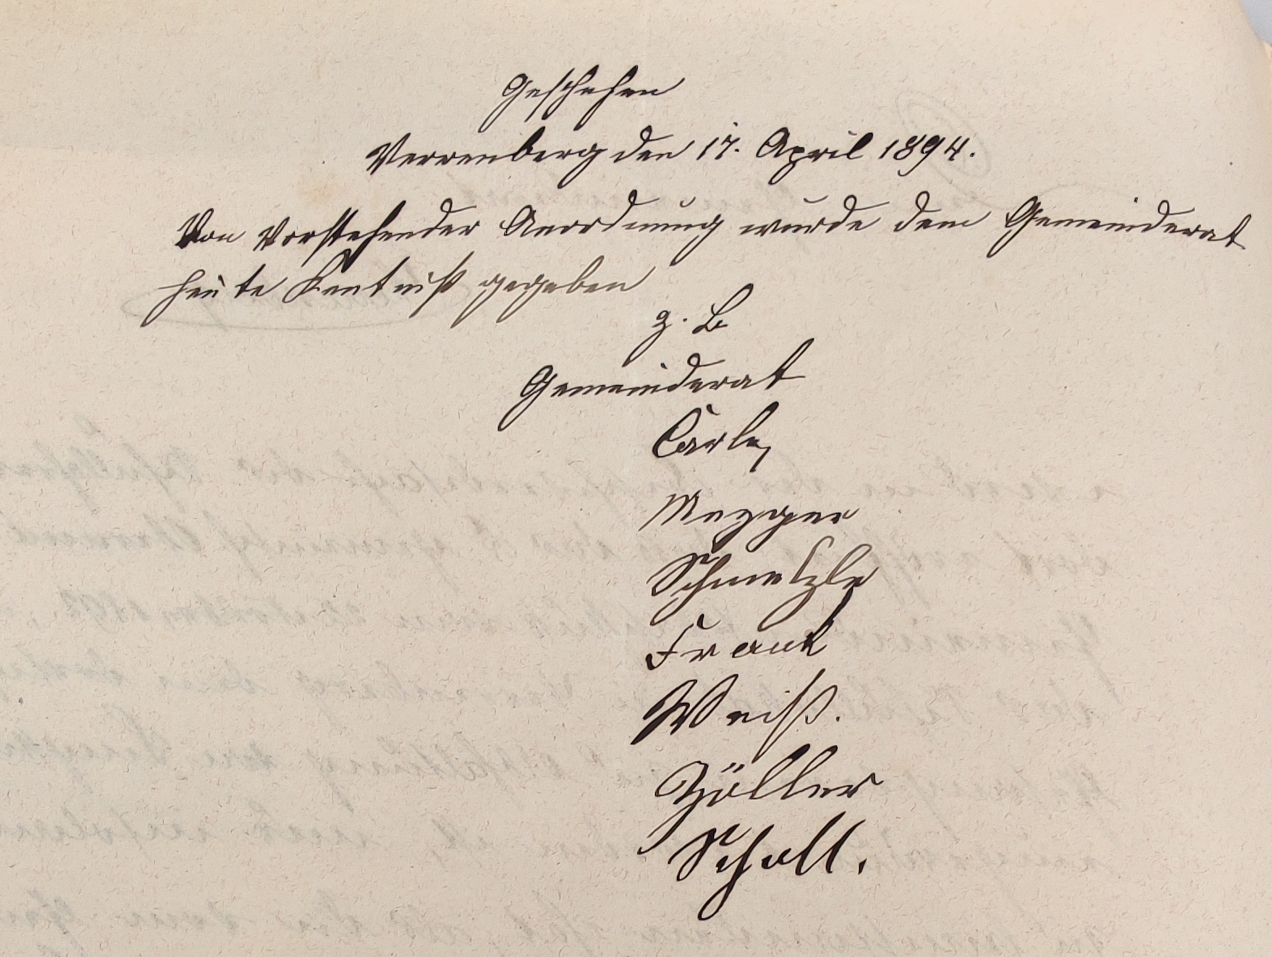 Geschehen
Verrenberg den 17. April 1894.
Von Vorstehender Anordnung wurde dem Gemeinderat
heute Kentniß gegeben
z. B
Gemeinderat
Carle,
Mezger
Schmelzle
Frank
Weiß.
Zöller
Scholl.